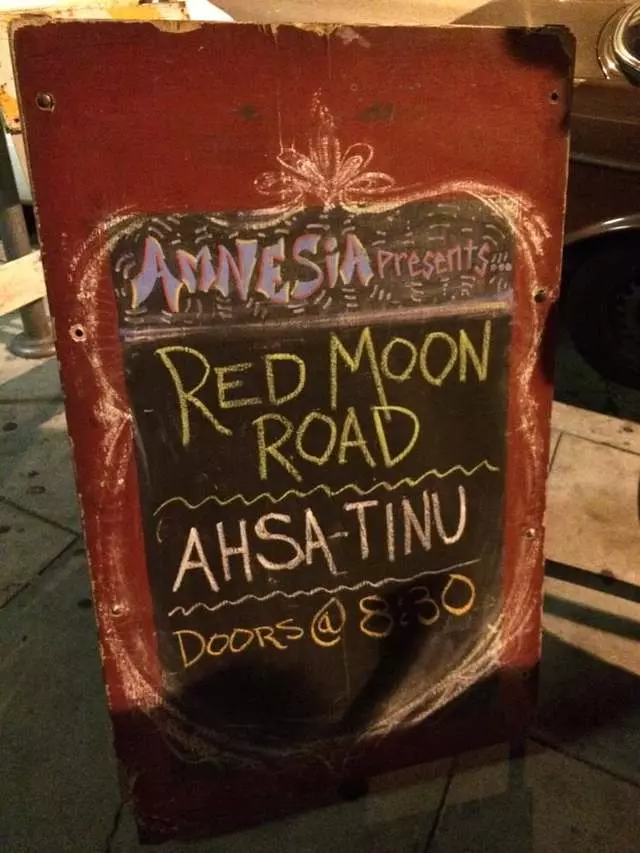 AMNESiA presents...
RED MOON
ROAD
AHSA-TINU
DOORS @ 8:30